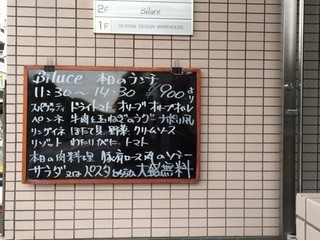 2F Biluce
1F SESSAW DESIGN WAREHOUSE
Biluce 本日のランチ
11:30〜14:30 ¥900より
スパゲッティ ドライトマト オリーブ オリーブオイル
ペンネ 牛肉と玉ねぎのラグー ナポリ風
リングイネ ほたて貝 野菜 クリームソース
リゾット わたりがに トマト
本日の肉料理 豚肩ロース肉の
サラダ又は パスタどちらも大盛無料